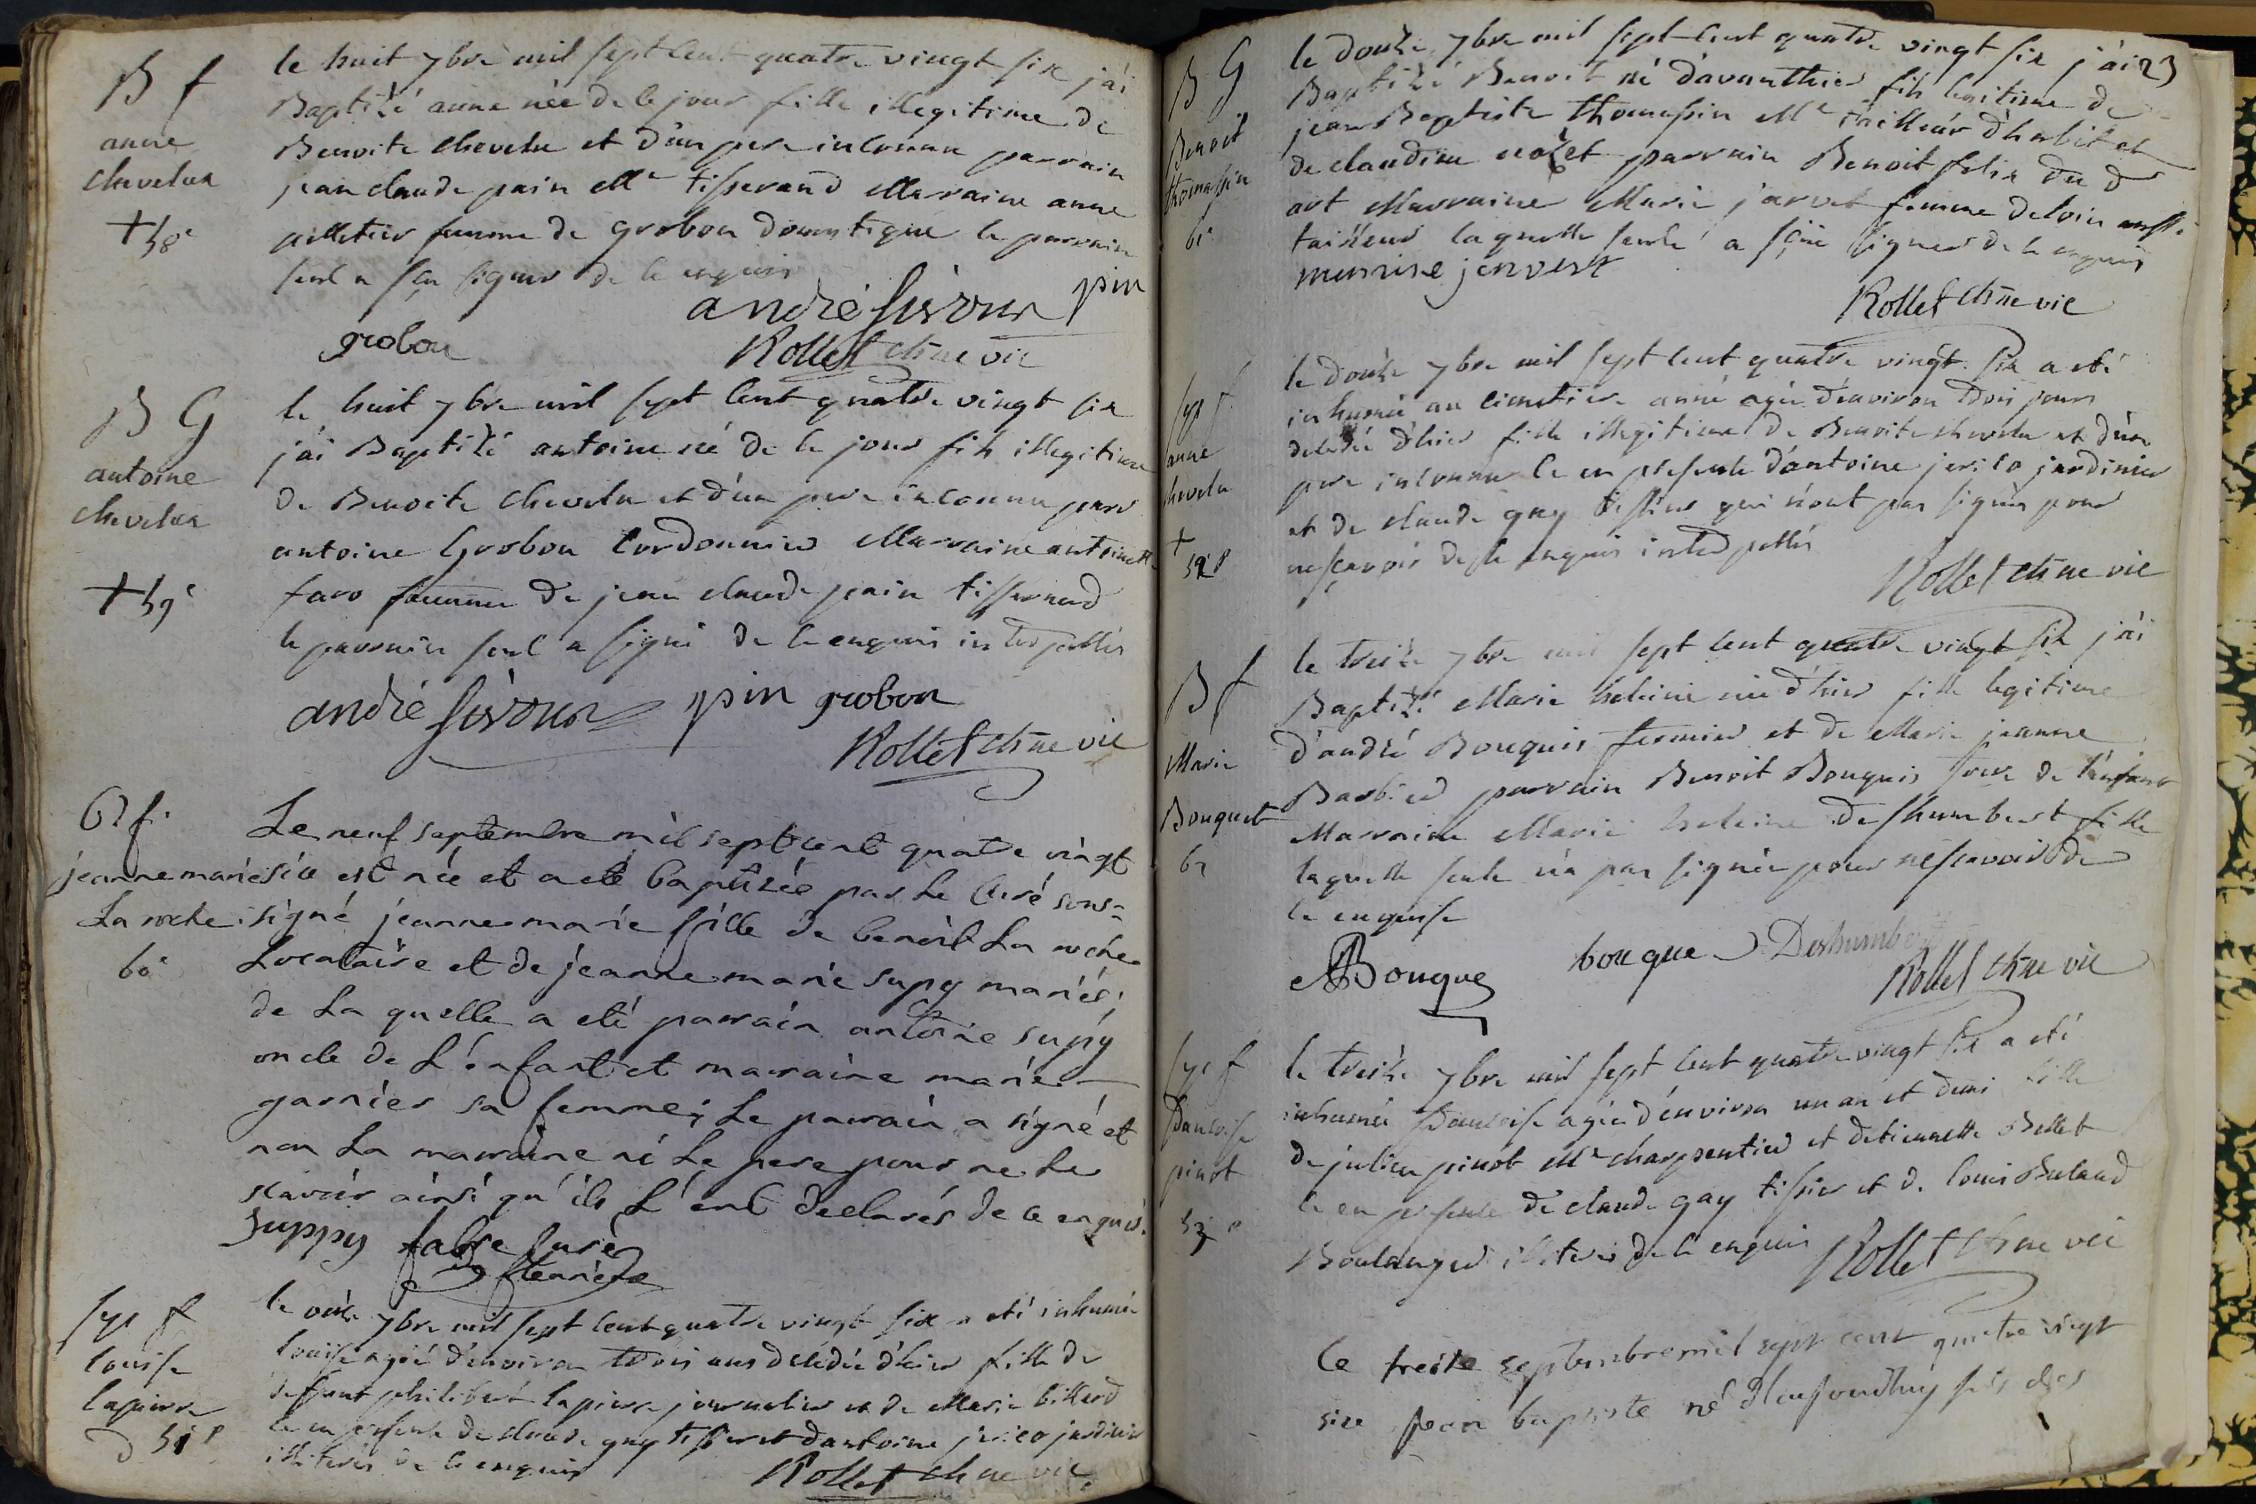 B f
anne
chevelu
+ 58e
le huit 7bre mil sept cent quatre vingt six j'ai
Baptizé anne née de ce jour fille illegitime de
Benoite chevelu et d'un pere inconnu parrain
jean claude pain Me tisserand Marraine anne
pelletier femme de grobon domestique le parrain
seul a sçu signer de ce enquis
andré sivoux pin
grobon Rollet chne vic
B G
antoine
chevelu
+ 59e
le huit 7bre mil sept cent quatre vingt six
j'ai Baptizé antoine né de ce jour fils illegitime
de Benoite chevelu et d'un pere inconnu parr
antoine Grobon Cordonnier Marraine antoinette
faro femme de jean claude pain tisserand
le parrain seul a signé de ce enquis interpellés
andré sivoux pin grobon
Rollet chne vic
B f.
jeanne marie
La roche
60e
Le neuf septembre mil sept cent quatre vingt
six est née et a eté baptizée par le Curé sous=
signé jeanne marie fille de benoit La roche
Locataire et de jeanne marie supy mariés;
de La quelle a eté parrain antoine supy
oncle de L'enfant et marraine marie
garnier sa femme; Le parrain a signé et
non La marraine ni Le pere pour ne Le
scavoir ainsi qu'ils L'ont declarés de ce enquis.
Suppy fabre curé
Sep f
louise
lapierre
51e
le onze 7bre mil sept cent quatre vingt six a eté inhumée
louise agée d'environ trois ans decedée d'hier fille de
deffunt philibert lapierre journalier et de Marie billard
ce en presence de claude gay tissier et d'antoine jerico jardinier
illiterés de ce enquis
Rollet chne vic
23
B G
Benoit
thomassin
61e
le douze 7bre mil sept cent quatre vingt six j'ai
Baptizé Benoit né d'avanthier fils legitime de
jean Baptiste thomassin Me tailleur d'habit et
de claudine nozet parrain Benoit felix du d
art Marraine Marie jarvet femme deloin aussi
tailleur laquelle seule a sçue signer de ce enquis
Rollet chne vic
Sep f
anne
chevelu
+
52e
le douze 7bre mil sept cent quatre vingt six a eté
inhumée au cimetiere anne agée d'environ trois jours
decedée d'hier fille illegitime de Benoite chevelu et d'un
pere inconnu ce en presence d'antoine jerico jardinier
et de claude gay tissier qui n'ont pas signés pour
ne sçavoir de ce enquis interpellés
Rollet chne vic
B f
Marie
Bouquet
62
le treize 7bre mil sept cent quatre vingt six j'ai
Baptizé Marie heleine née d'hier fille legitime
d'andré Bouquis fermier et de Marie jeanne
Barbier parrain Benoit Bouquis frere de l'enfant
Marraine Marie heleine deshumbert fille
laquelle seule n'a pas signée pour ne scavoir de
ce enquise
ABouque bouque Deshumbe
Rollet chne vic
Sep f
francoise
pinot
53e
le treize 7bre mil sept cent quatre vingt six a eté
inhumée francoise agée d'environ un an et demi fille
de julien pinot Me charpentier et d'etiennette Bellet
ce en presence de claude gay tissier et de louis Buland
Boulanger illiterés de ce enquis Rollet chne vic
Ce treize septembre mil sept cent quatre vingt
size jean baptiste né d'aujourdhuy fils de